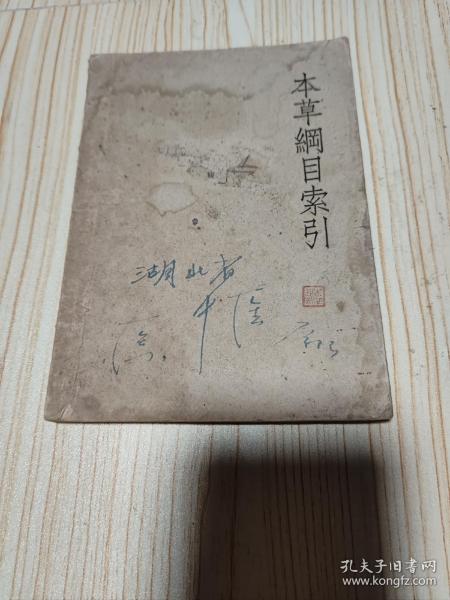 本草綱目索引
湖北省
中医
孔夫子旧书网
www.kongfz.com